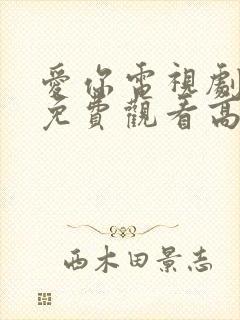 愛你電視劇
免費觀看高
西木田景志